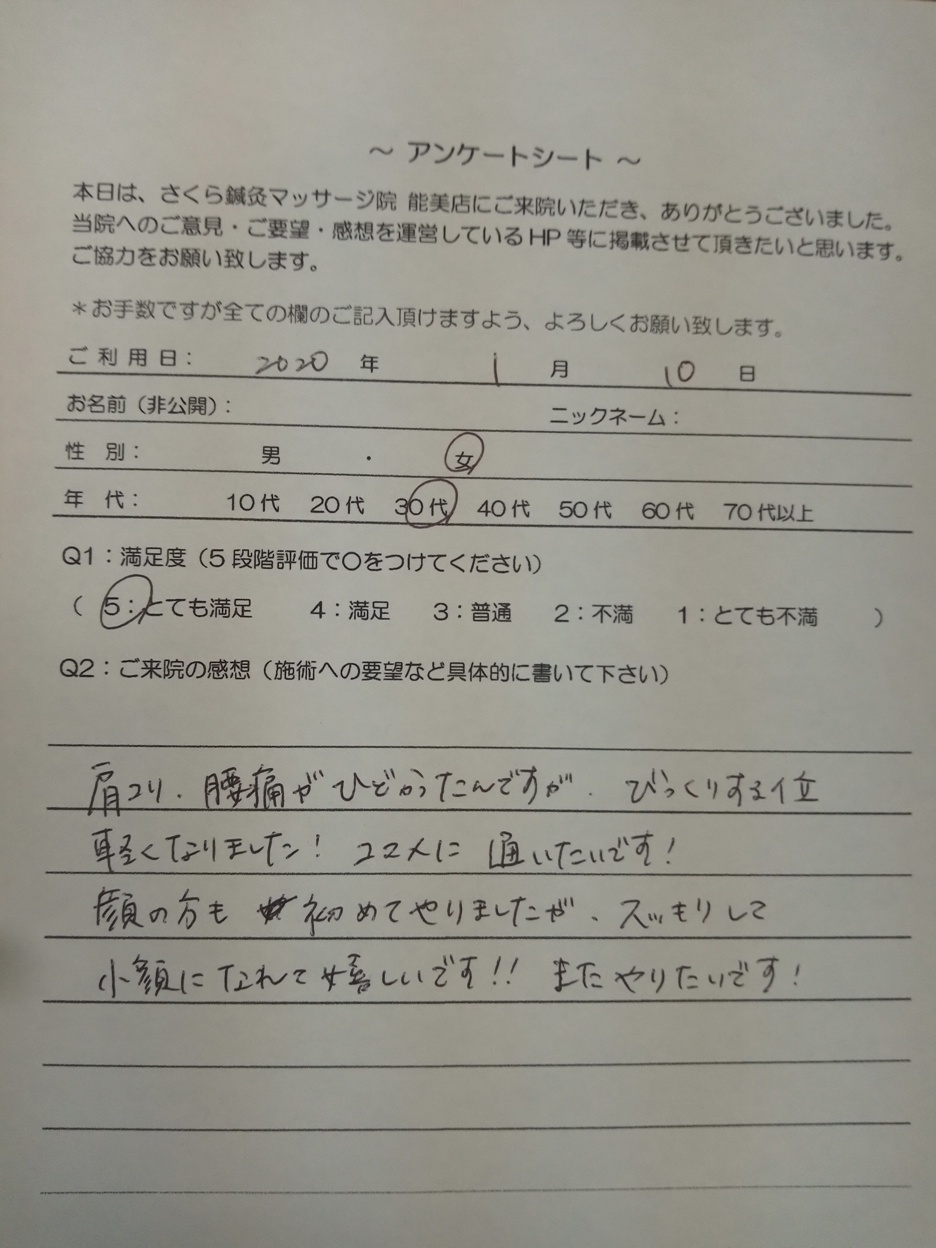 ～ アンケートシート ～
本日は、さくら鍼灸マッサージ院 能美店にご来院いただき、ありがとうございました。
当院へのご意見・ご要望・感想を運営しているHP等に掲載させて頂きたいと思います。
ご協力をお願い致します。
＊お手数ですが全ての欄のご記入頂けますよう、よろしくお願い致します。
ご利用日： 2020 年 1 月 10 日
お名前（非公開）： ニックネーム：
性 別： 男 ・ 女
年 代： 10代 20代 30代 40代 50代 60代 70代以上
Q1：満足度（5段階評価で〇をつけてください）
（ 5：とても満足 4：満足 3：普通 2：不満 1：とても不満 ）
Q2：ご来院の感想（施術への要望など具体的に書いて下さい）
肩コリ、腰痛がひどかったんですが、びっくりする位
軽くなりました！ コマメに通いたいです！
顔の方も初めてやりましたが、スッキリして
小顔になれて嬉しいです！！ またやりたいです！